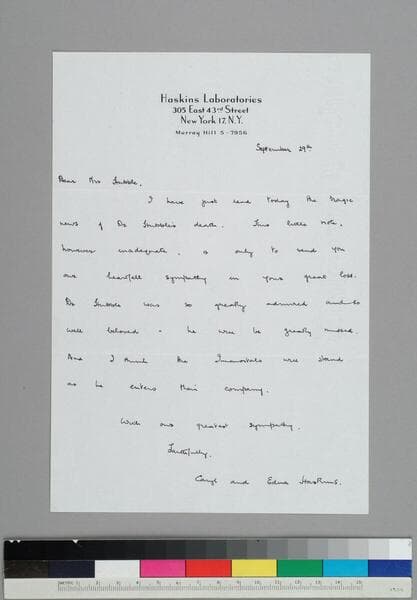 Haskins Laboratories
305 East 43rd Street
New York 17, N.Y.
Murray Hill 5-7956
September 29th
Dear Mrs Hubble,
I have just read today the tragic
news of Dr Hubble's death. This little note,
however inadequate, is only to send you
our heartfelt sympathy in your great loss.
Dr Hubble was so greatly admired and so
well beloved - he will be greatly missed.
And I think the Immortals will stand
as he enters their company.
With our greatest sympathy.
Faithfully,
Caryl and Edna Haskins.
1 2 3 4 5 6 7 8 9 10 11 12 13 14 15